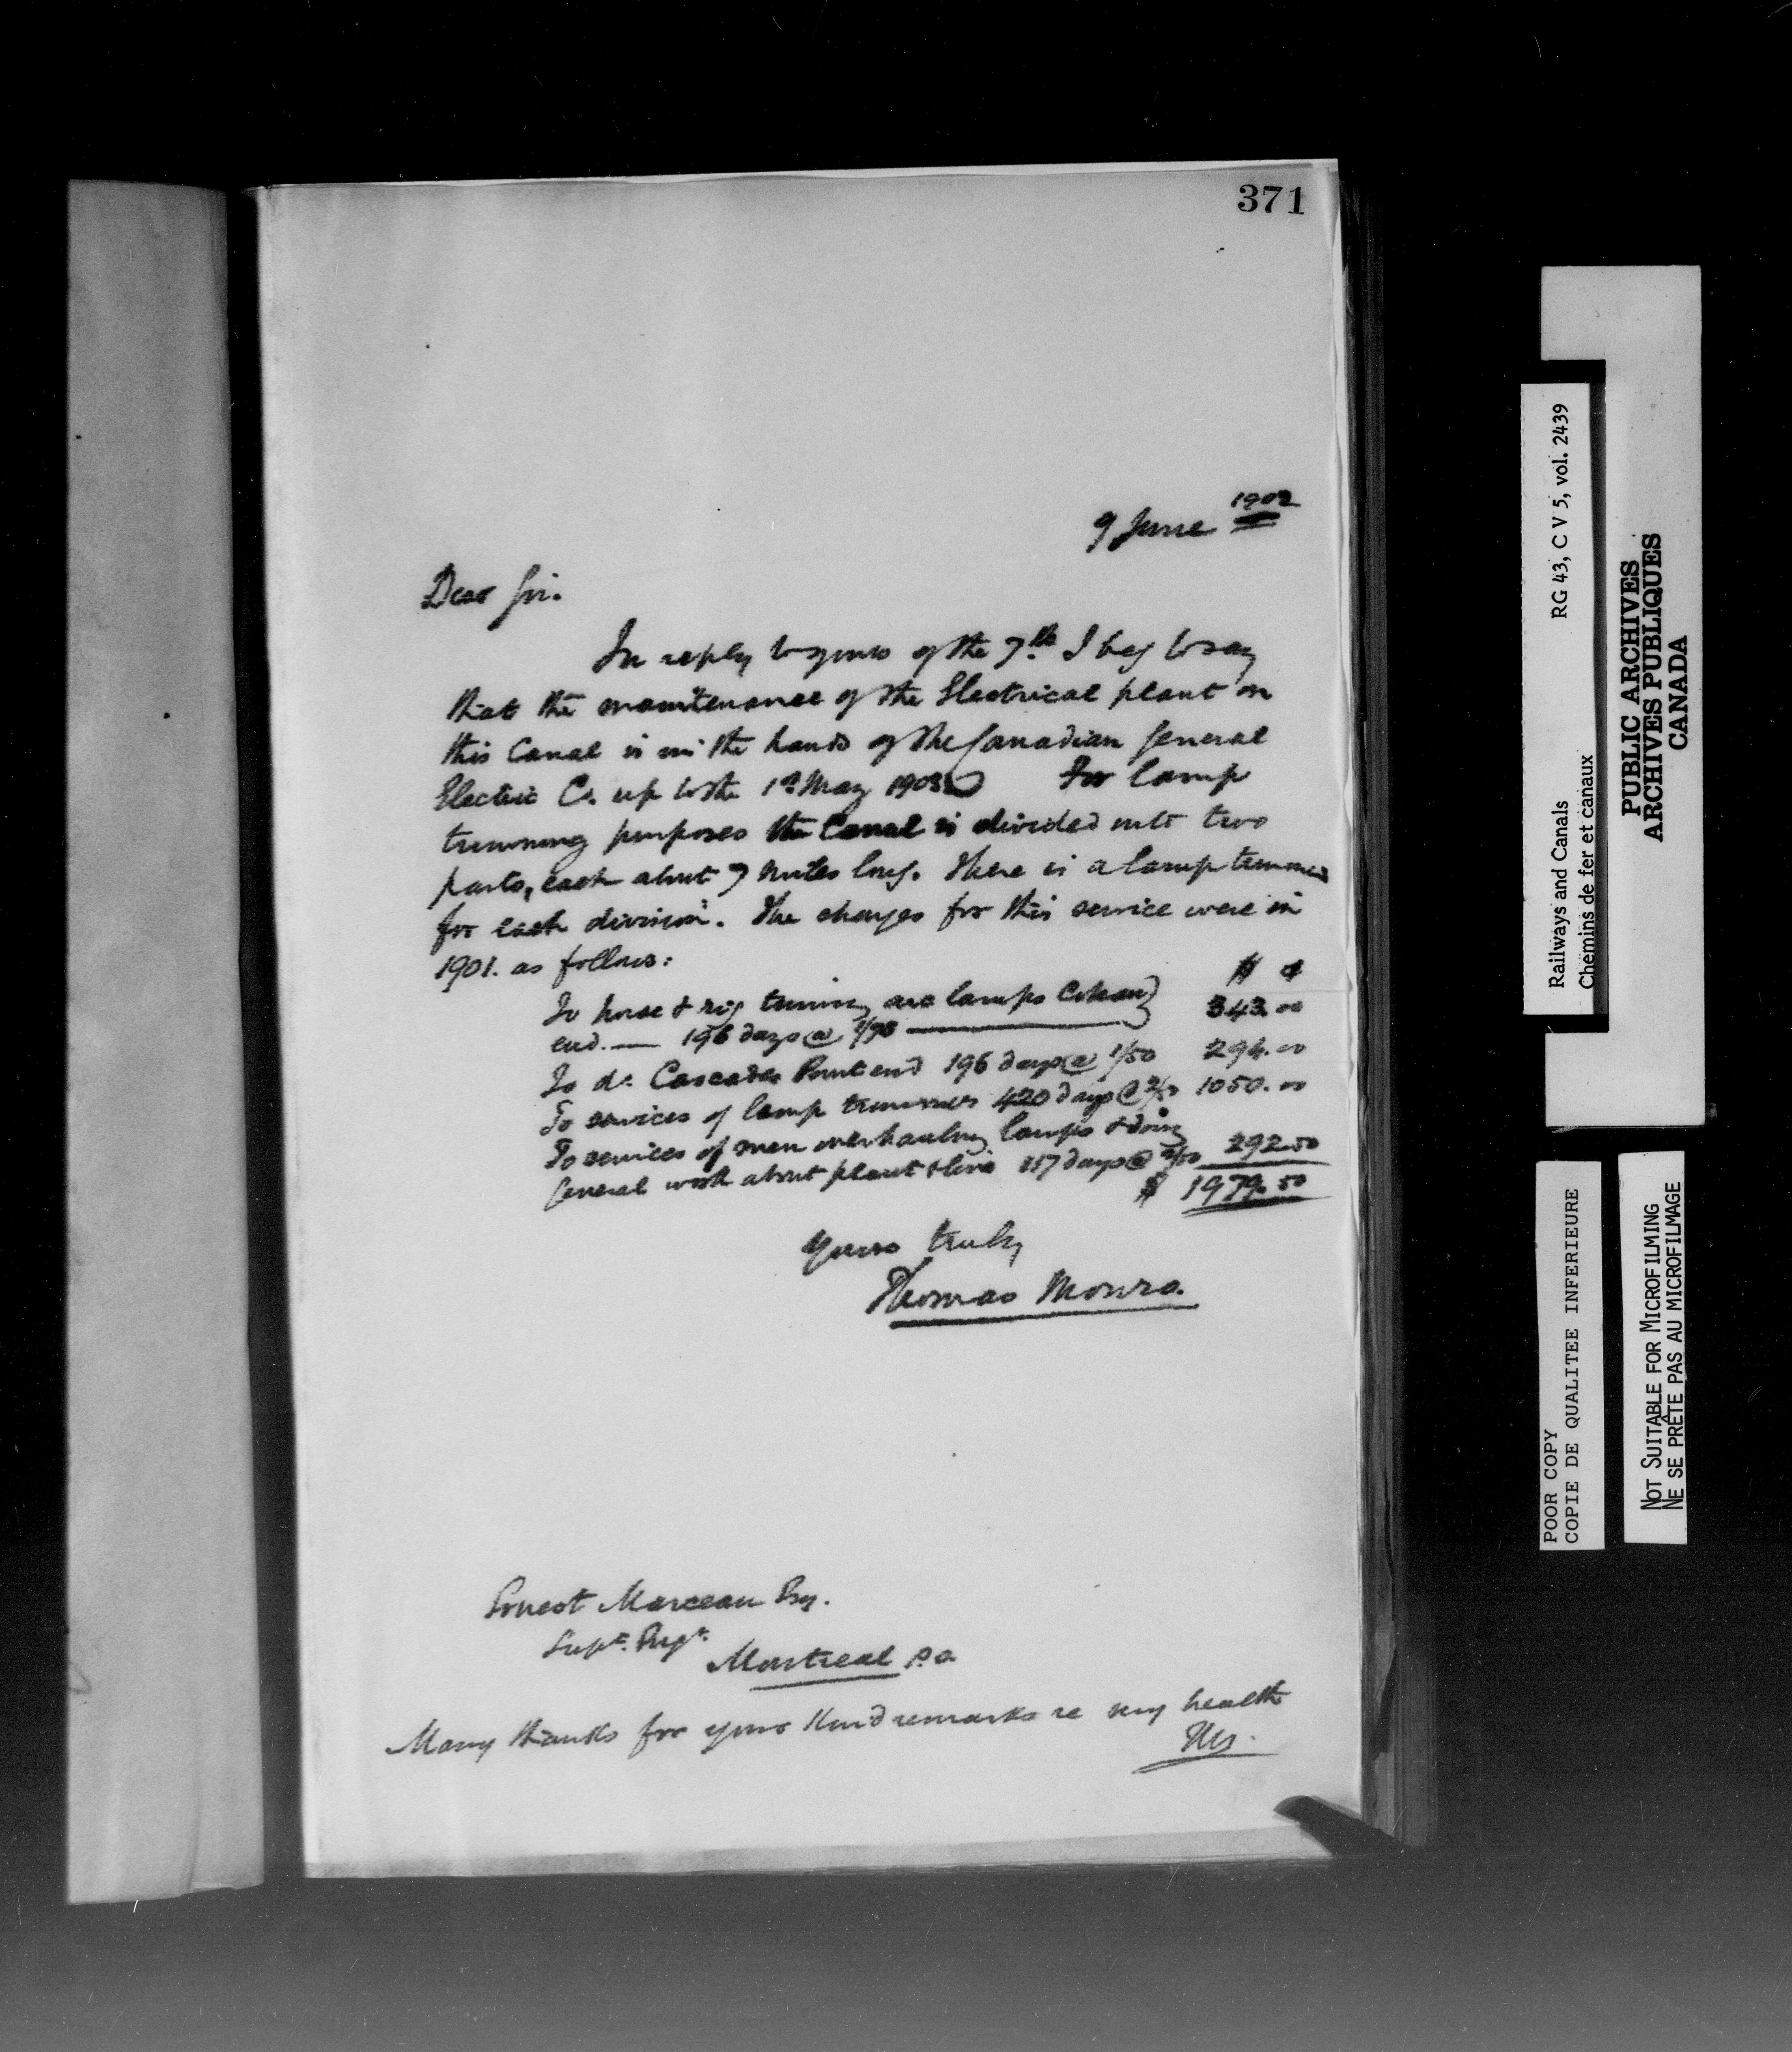 371
9 June 1902
Dear Sir.
In reply to yours of the 7th I beg to say
that the maintenance of the Electrical plant on
this Canal is in the hands of the Canadian General
Electric Co. up to the 1st May 1903. For lamp
trimming purposes the Canal is divided into two
parts, each about 7 miles long. There is a lamp trimmer
for each division. The charges for this service were in
1901. as follows:
$ ¢
To horse & rig trimming arc lamps Coteau
end. — 196 days @ 1/75 343.00
To do. Cascades Point end 196 days @ 1/50 294.00
To services of lamp trimmers 420 days @ 2/50 1050.00
To services of men overhauling lamps & doing
General work about plant & line 117 days @ 2/50 292.50
$ 1979.50
Yours truly
Thomas Monro.
Ernest Marceau Esq.
Supt. Engr.
Montreal P.Q.
Many thanks for your kind remarks re my health
TM.
Railways and Canals RG 43, C V 5, vol. 2439
Chemins de fer et canaux
PUBLIC ARCHIVES
ARCHIVES PUBLIQUES
CANADA
POOR COPY
COPIE DE QUALITEE INFERIEURE
NOT SUITABLE FOR MICROFILMING
NE SE PRÊTE PAS AU MICROFILMAGE